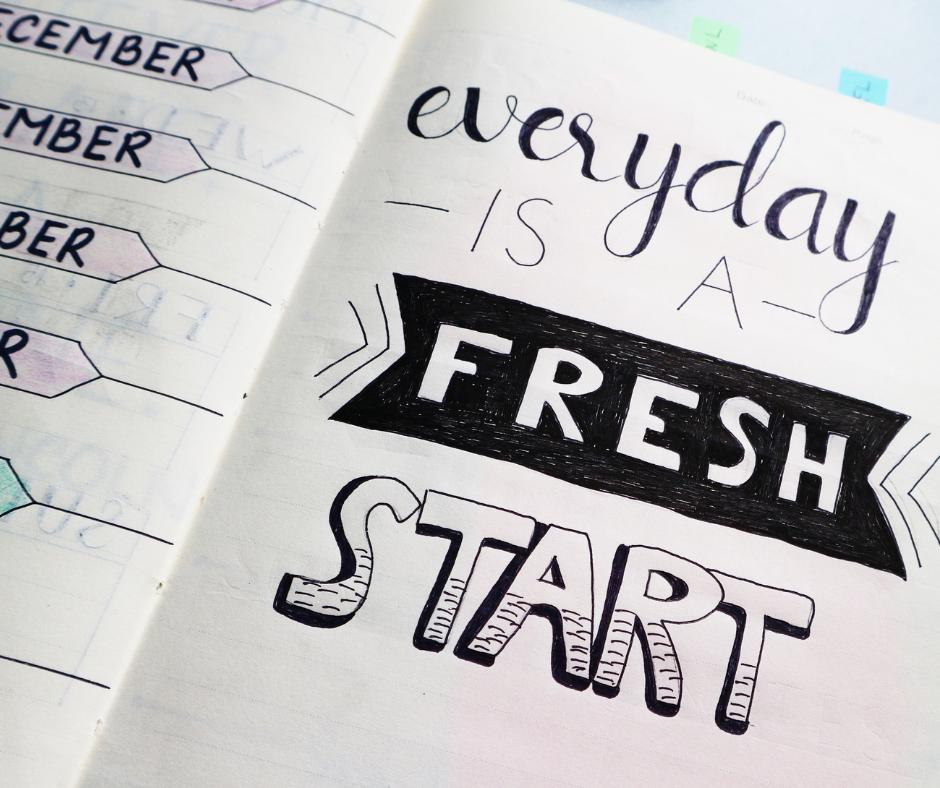 ECEMBER
EMBER
BER
R
everyday
IS A
FRESH
START